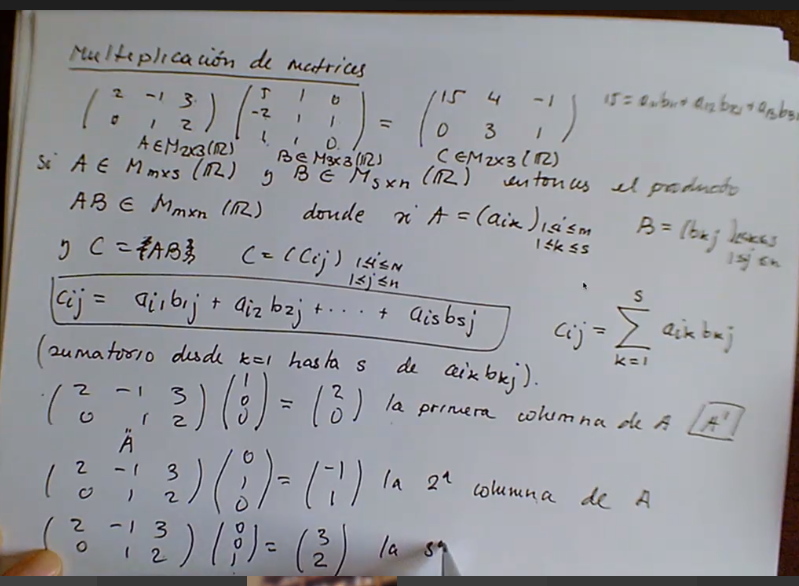 Multiplicación de matrices
( 2 -1 3 ; 0 1 2 ) ( 5 1 0 ; -2 1 1 ; 1 1 0 ) = ( 15 4 -1 ; 0 3 1 ) 15 = a11b11 + a12b21 + a13b31
A ∈ M2x3(ℝ) B ∈ M3x3(ℝ) C ∈ M2x3(ℝ)
Si A ∈ Mmxs (ℝ) y B ∈ Msxn (ℝ) entonces el producto
AB ∈ Mmxn (ℝ) donde si A = (aik) 1≤i≤m 1≤k≤s B = (bkj) 1≤k≤s 1≤j≤n
y C = {AB} C = (Cij) 1≤i≤N 1≤j≤n
Cij = ai1b1j + ai2b2j + ··· + aisbsj Cij = ∑ s k=1 aik bkj
(sumatorio desde k=1 hasta s de aik bkj).
( 2 -1 3 ; 0 1 2 ) ( 1 ; 0 ; 0 ) = ( 2 ; 0 ) la primera columna de A A¹
" A
( 2 -1 3 ; 0 1 2 ) ( 0 ; 1 ; 0 ) = ( -1 ; 1 ) la 2ª columna de A
( 2 -1 3 ; 0 1 2 ) ( 0 ; 0 ; 1 ) = ( 3 ; 2 ) la